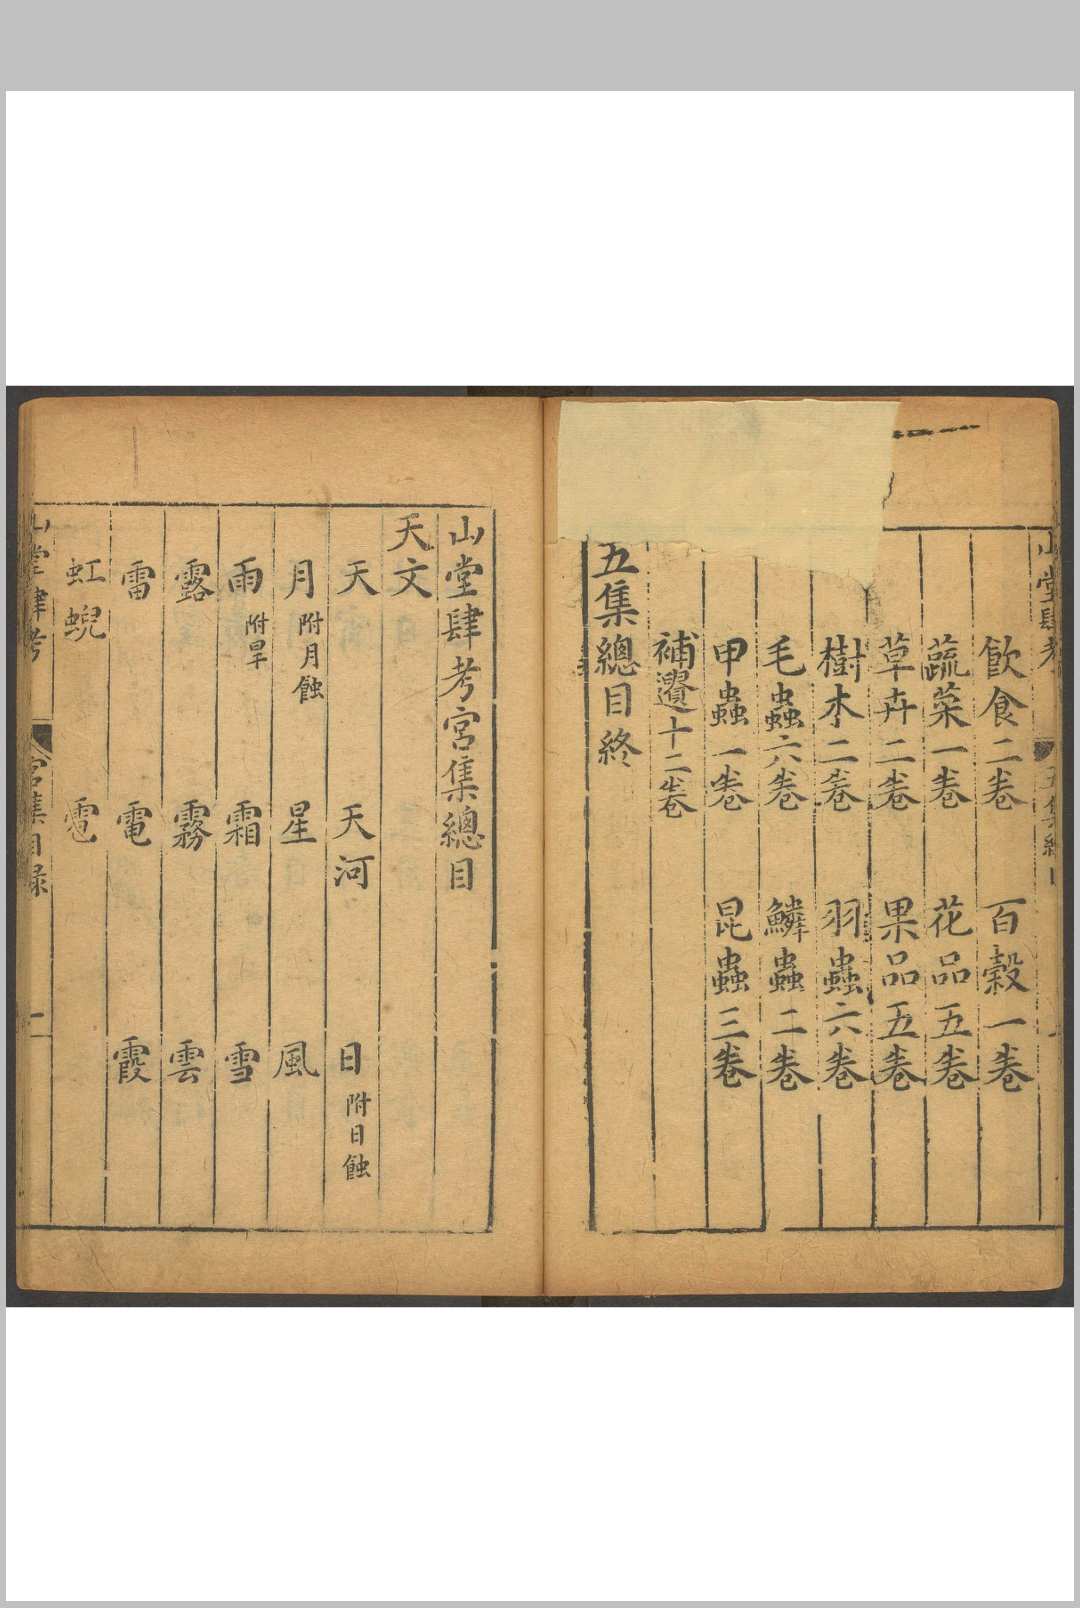 飲食二卷 百穀一卷
蔬菜一卷 花品五卷
草卉二卷 果品五卷
樹木二卷 羽蟲六卷
毛蟲六卷 鱗蟲二卷
甲蟲一卷 昆蟲三卷
補遺十二卷
五集總目終
山堂肆考宮集總目
天文
天 天河 日附日蝕
月附月蝕 星 風
雨附旱 霜 雪
露 霧 雲
雷 電 霞
虹蜺 雹
山堂肆考 宮集目錄 一